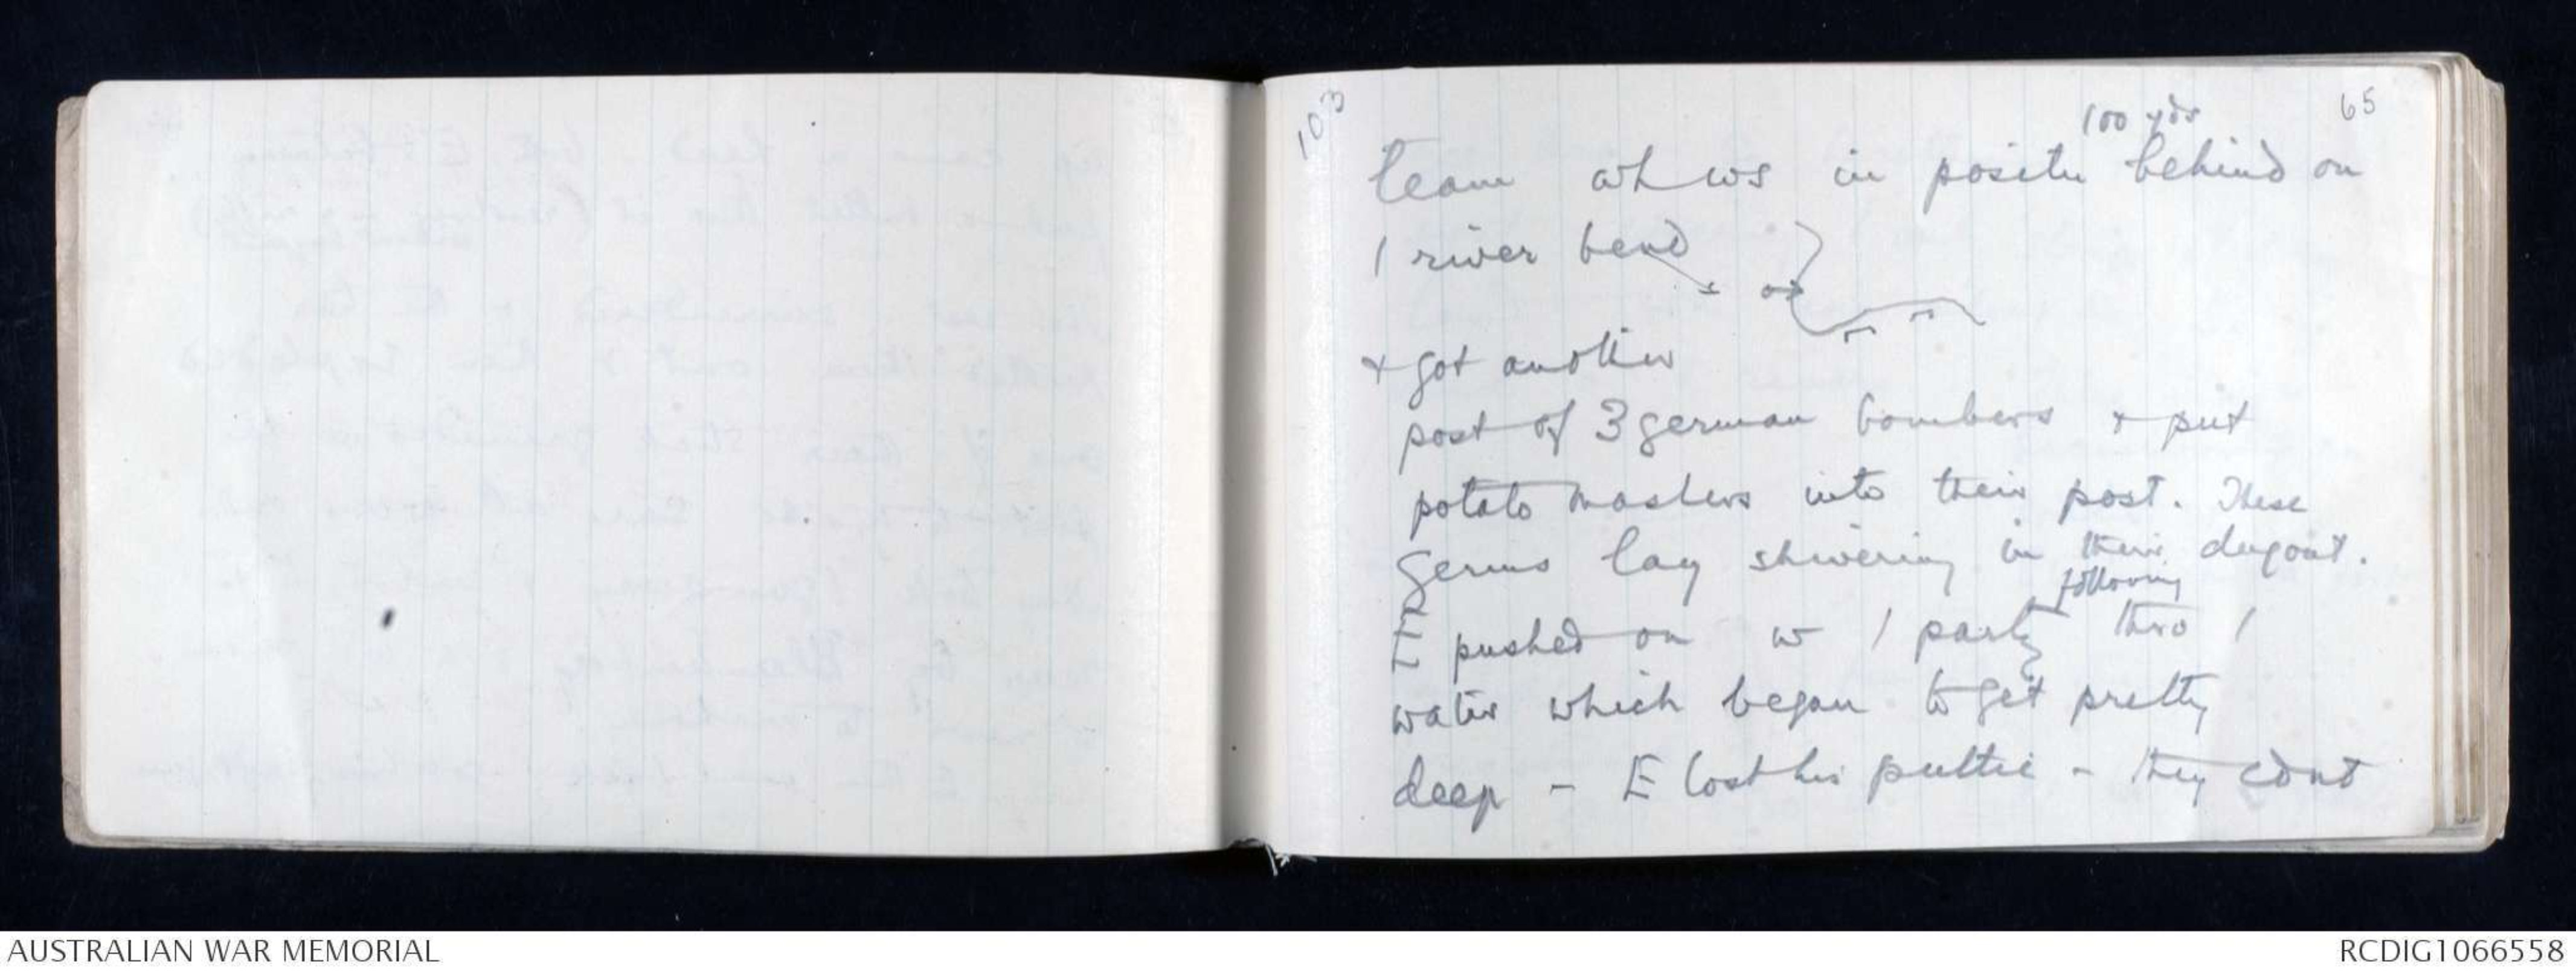 103
65
100 yds
team wh ws in positn behind on
/ river bend
& got another
post of 3 german bombers & put
potato mashers into their post. These
Germs lay shivering in their dugout.
following
E pushed on w / party thro /
water which began to get pretty
deep - E lost his puttie - they cdnt
AUSTRALIAN WAR MEMORIAL
RCDIG1066558